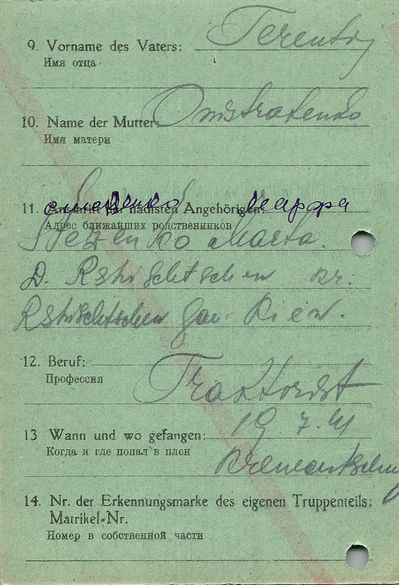 9. Vorname des Vaters: Terentij
Имя отца
10. Name der Mutter: Onistratenko
Имя матери
Марфа
11. Anschrift der nächsten Angehörigen:
Адрес ближайших родственников
Marta.
D. Rshischtschew kr.
Rshischtschew gou. Kiew.
12. Beruf:
Профессия
Traktorist
19 7. 41
13 Wann und wo gefangen:
Когда и где попал в плен
Krementschug
14. Nr. der Erkennungsmarke des eigenen Truppenteils:
Matrikel-Nr.
Номер в собственной части